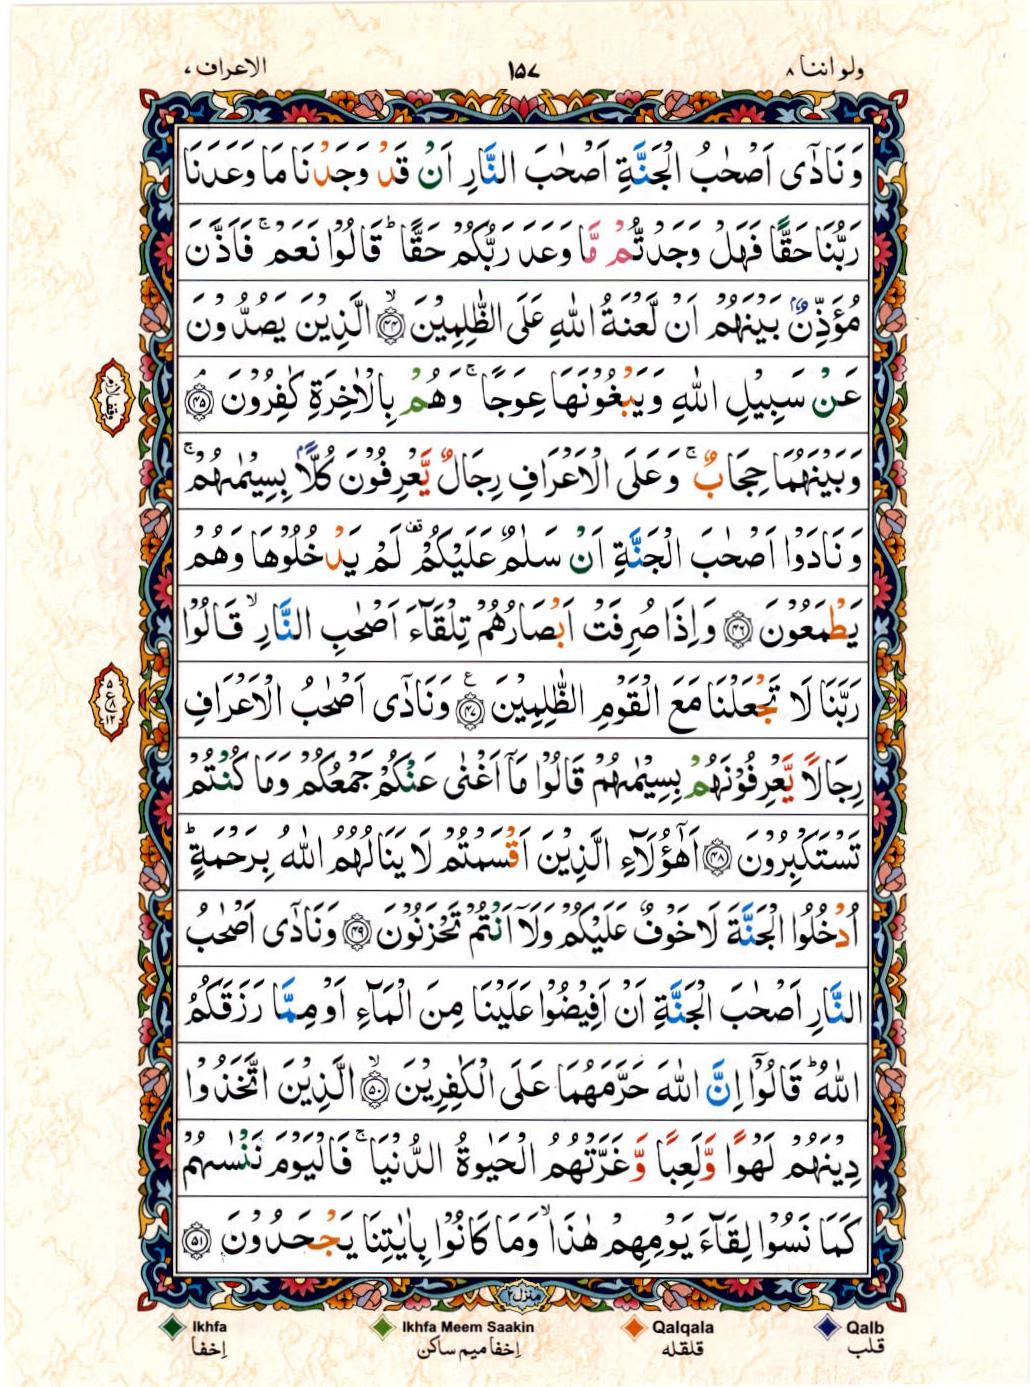 ولو اننا ۸
۱۵۷
الاعراف ۷
وَنَادٰۤی اَصْحٰبُ الْجَنَّةِ اَصْحٰبَ النَّارِ اَنْ قَدْ وَجَدْنَا مَا وَعَدَنَا
رَبُّنَا حَقًّا فَهَلْ وَجَدْتُّمْ مَّا وَعَدَ رَبُّكُمْ حَقًّا ؕ قَالُوْا نَعَمْ ۚ فَاَذَّنَ
مُؤَذِّنٌۢ بَیْنَهُمْ اَنْ لَّعْنَةُ اللّٰهِ عَلَی الظّٰلِمِیْنَ ۙ﴿۴۴﴾ الَّذِیْنَ یَصُدُّوْنَ
عَنْ سَبِیْلِ اللّٰهِ وَیَبْغُوْنَهَا عِوَجًا ۚ وَهُمْ بِالْاٰخِرَةِ كٰفِرُوْنَ ۘ﴿۴۵﴾
وقف لازم
وَبَیْنَهُمَا حِجَابٌ ۚ وَعَلَی الْاَعْرَافِ رِجَالٌ یَّعْرِفُوْنَ كُلًّۢا بِسِیْمٰىهُمْ ۚ
وَنَادَوْا اَصْحٰبَ الْجَنَّةِ اَنْ سَلٰمٌ عَلَیْكُمْ ۫ لَمْ یَدْخُلُوْهَا وَهُمْ
یَطْمَعُوْنَ ﴿۴۶﴾ وَاِذَا صُرِفَتْ اَبْصَارُهُمْ تِلْقَآءَ اَصْحٰبِ النَّارِ ۙ قَالُوْا
رَبَّنَا لَا تَجْعَلْنَا مَعَ الْقَوْمِ الظّٰلِمِیْنَ ۧ﴿۴۷﴾ وَنَادٰۤی اَصْحٰبُ الْاَعْرَافِ
۵
ع
۸
۱۲
رِجَالًا یَّعْرِفُوْنَهُمْ بِسِیْمٰىهُمْ قَالُوْا مَاۤ اَغْنٰی عَنْكُمْ جَمْعُكُمْ وَمَا كُنْتُمْ
تَسْتَكْبِرُوْنَ ﴿۴۸﴾ اَهٰۤؤُلَآءِ الَّذِیْنَ اَقْسَمْتُمْ لَا یَنَالُهُمُ اللّٰهُ بِرَحْمَةٍ ؕ
اُدْخُلُوا الْجَنَّةَ لَا خَوْفٌ عَلَیْكُمْ وَلَاۤ اَنْتُمْ تَحْزَنُوْنَ ﴿۴۹﴾ وَنَادٰۤی اَصْحٰبُ
النَّارِ اَصْحٰبَ الْجَنَّةِ اَنْ اَفِیْضُوْا عَلَیْنَا مِنَ الْمَآءِ اَوْ مِمَّا رَزَقَكُمُ
اللّٰهُ ؕ قَالُوْۤا اِنَّ اللّٰهَ حَرَّمَهُمَا عَلَی الْكٰفِرِیْنَ ۙ﴿۵۰﴾ الَّذِیْنَ اتَّخَذُوْا
دِیْنَهُمْ لَهْوًا وَّلَعِبًا وَّغَرَّتْهُمُ الْحَیٰوةُ الدُّنْیَا ۚ فَالْیَوْمَ نَنْسٰىهُمْ
كَمَا نَسُوْا لِقَآءَ یَوْمِهِمْ هٰذَا ۙ وَمَا كَانُوْا بِاٰیٰتِنَا یَجْحَدُوْنَ ﴿۵۱﴾
منزل ۲
Ikhfa Ikhfa Meem Saakin Qalqala Qalb
اِخفا اِخفا میم ساکن قلقله قلب